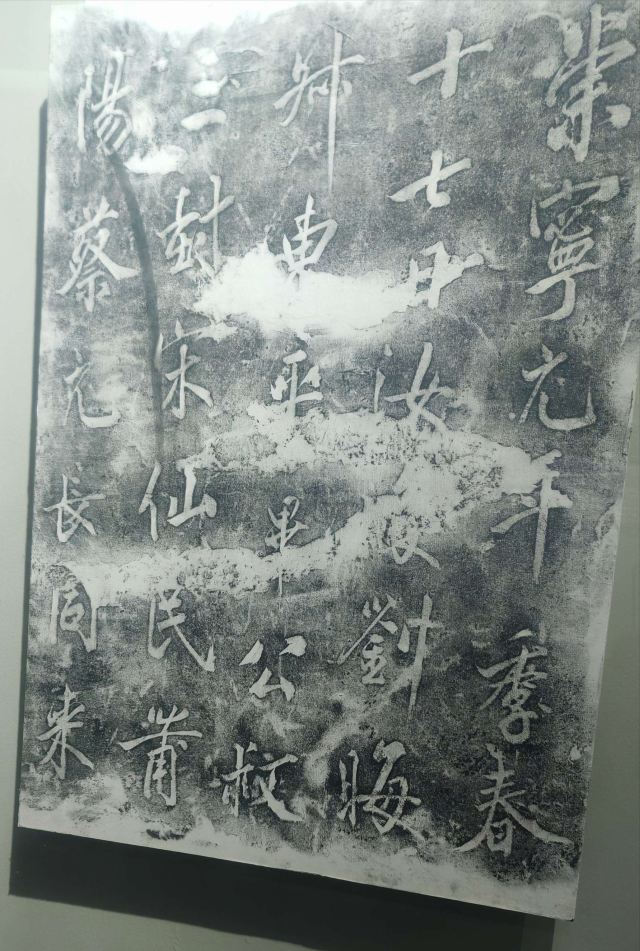 崇寧元年季春
十七日汝劉晦
叔東平畢公叔
三封宋仙民莆
陽蔡元長同来